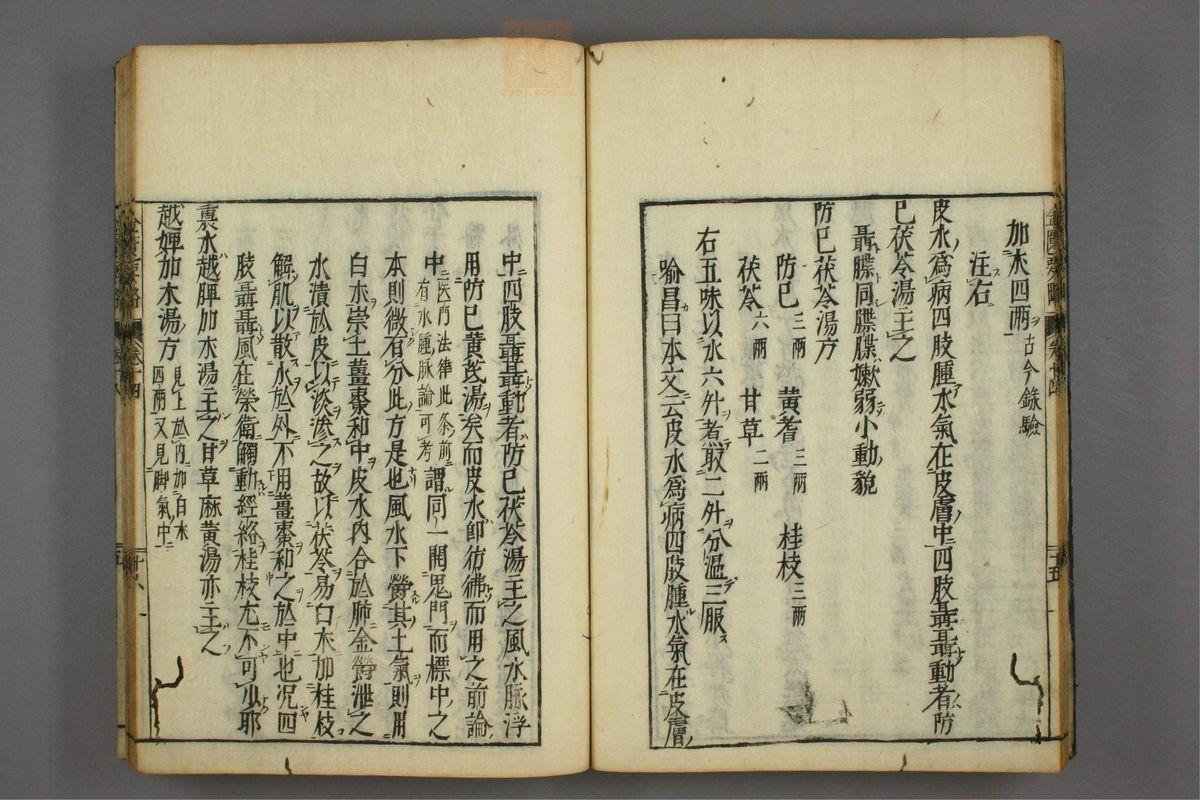 加朮四兩古今錄驗
注右
皮水爲病四肢腫水氣在皮膚中四肢聶聶動者防
已茯苓湯主之
聶䐑同䐑䐑嫰弱小動貌
防已茯苓湯方
防已三兩 黃耆三兩 桂枝三兩
茯苓六兩 甘草二兩
右五味以水六升煮取二升分溫三服
喻昌曰本文云皮水爲病四肢腫水氣在皮膚
中四肢聶聶動者防已茯苓湯主之風水脉浮
用防已黃芪湯矣而皮水卽彷彿而用之前論
中医門法律此条前有水腫脉論可考謂同一開鬼門而標中之
本則微有分此方是也風水下欝其土氣則用
白朮崇土薑棗和中皮水內合於肺金欝泄之
水漬於皮以淡滲之故以茯苓易白朮加桂枝
解肌以散水於外不用薑棗和之於中也况四
肢聶聶風在榮衛觸動經絡桂枝尤不可少耶
裏水越脾加朮湯主之甘草麻黃湯亦主之
越婢加朮湯方見上於內加白朮四兩又見脚氣中